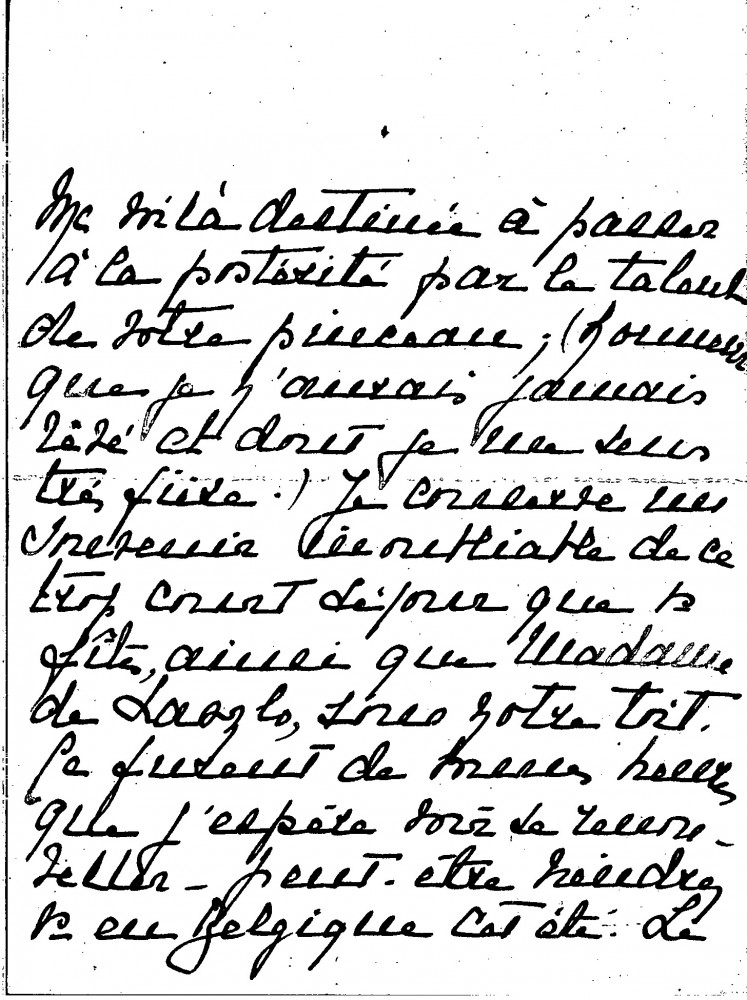 Me voilà destinée à passer
à la postérité par le talent
de votre pinceau ; (honneur
que je n'aurais jamais
rêvé et dont je me sens
très fière.) Je conserve un
souvenir inoubliable de ce
trop court séjour que vs
fîtes, ainsi que Madame
de Laszlo, sous notre toit.
Ce furent de bonnes heures
que j'espère voir se renou-
veller – peut-être viendrez
vs en Belgique cet été. Le